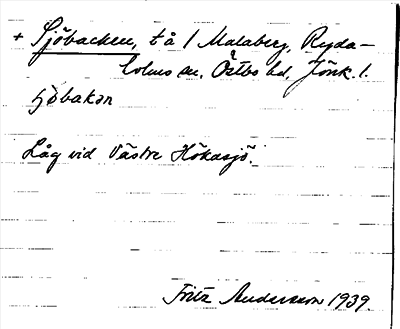 + Sjöbacken, t å / Malaberg, Ryda-
holms sn, Östbo hd, Jönk. l.
sjöbakan
Låg vid Västre Hökasjö.
Fritz Andersson 1939.